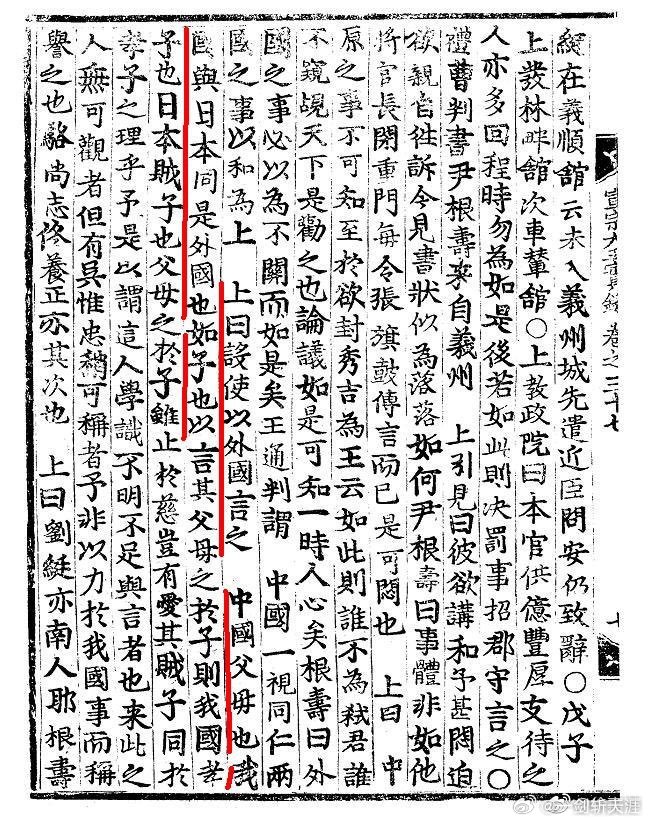 宣宗大王實錄 卷之三十七
綎在義順館云未入義州城先遣近臣問安仍致辭○戊子
上發林畔館次車輦館○上敎政院曰本官供億豐厚支待之
人亦多回程時勿為如是後若如此則決罰事招郡守言之○
禮曹判書尹根壽来自義州 上引見曰彼欲講和予甚悶迫
欲親自往訴今見書狀似為落落如何尹根壽曰事體非如他
將官長閉重門每令張旗鼓傳言而已是可悶也 上曰 中
原之事不可知至於欲封秀吉為王云如此則誰不為弑君誰
不窺覘天下是勸之也論議如是可知一時人心矣根壽曰外
國之事必以為不關而如是矣王通判謂 中國一視同仁兩
國之事以和為上 上曰設使以外國言之 中國父母也我
國與日本同是外國也如子也以言其父母之於子則我國孝
子也日本賊子也父母之於子雖止於慈豈有愛其賊子同於
孝子之理乎予是以謂這人學識不明不足與言者也来此之
人無可觀者但有吳惟忠稍可稱者予非以力於我國事而稱
譽之也駱尚志修養正亦其次也 上曰劉綎亦南人耶根壽
@剑斩天涯